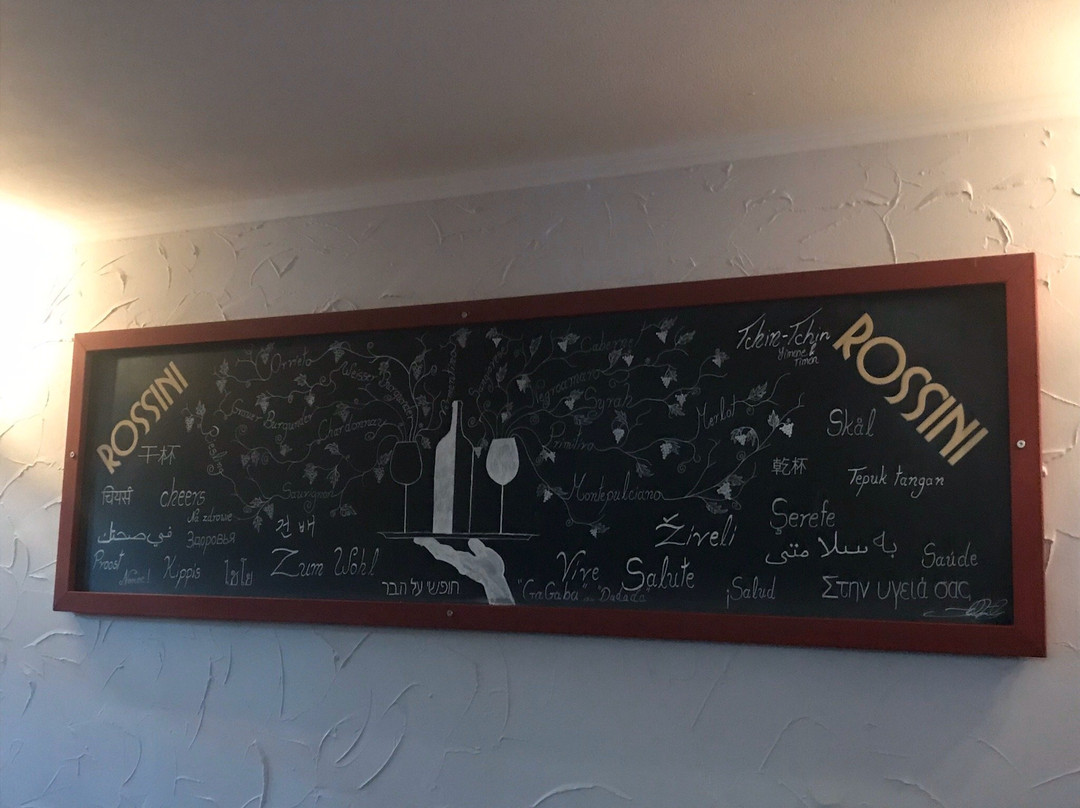 ROSSINI
Ornella
Weisser Burgunder
Grauer Burgunder
Chardonnay
Sauvignon
Cabernet
Negroamaro
Syrah
Primitivo
Merlot
Montepulciano
Tchin-Tchin
ROSSINI
干杯
चियर्स
cheers
في صحتك
Na zdrowie
Здоровья
Proost
Kippis
건배
Zum Wohl
Živeli
Vive
Salute
"GaGaba"
Skål
乾杯
Tepuk tangan
Şerefe
به سلامتی
Saúde
¡Salud
Στην υγειά σας